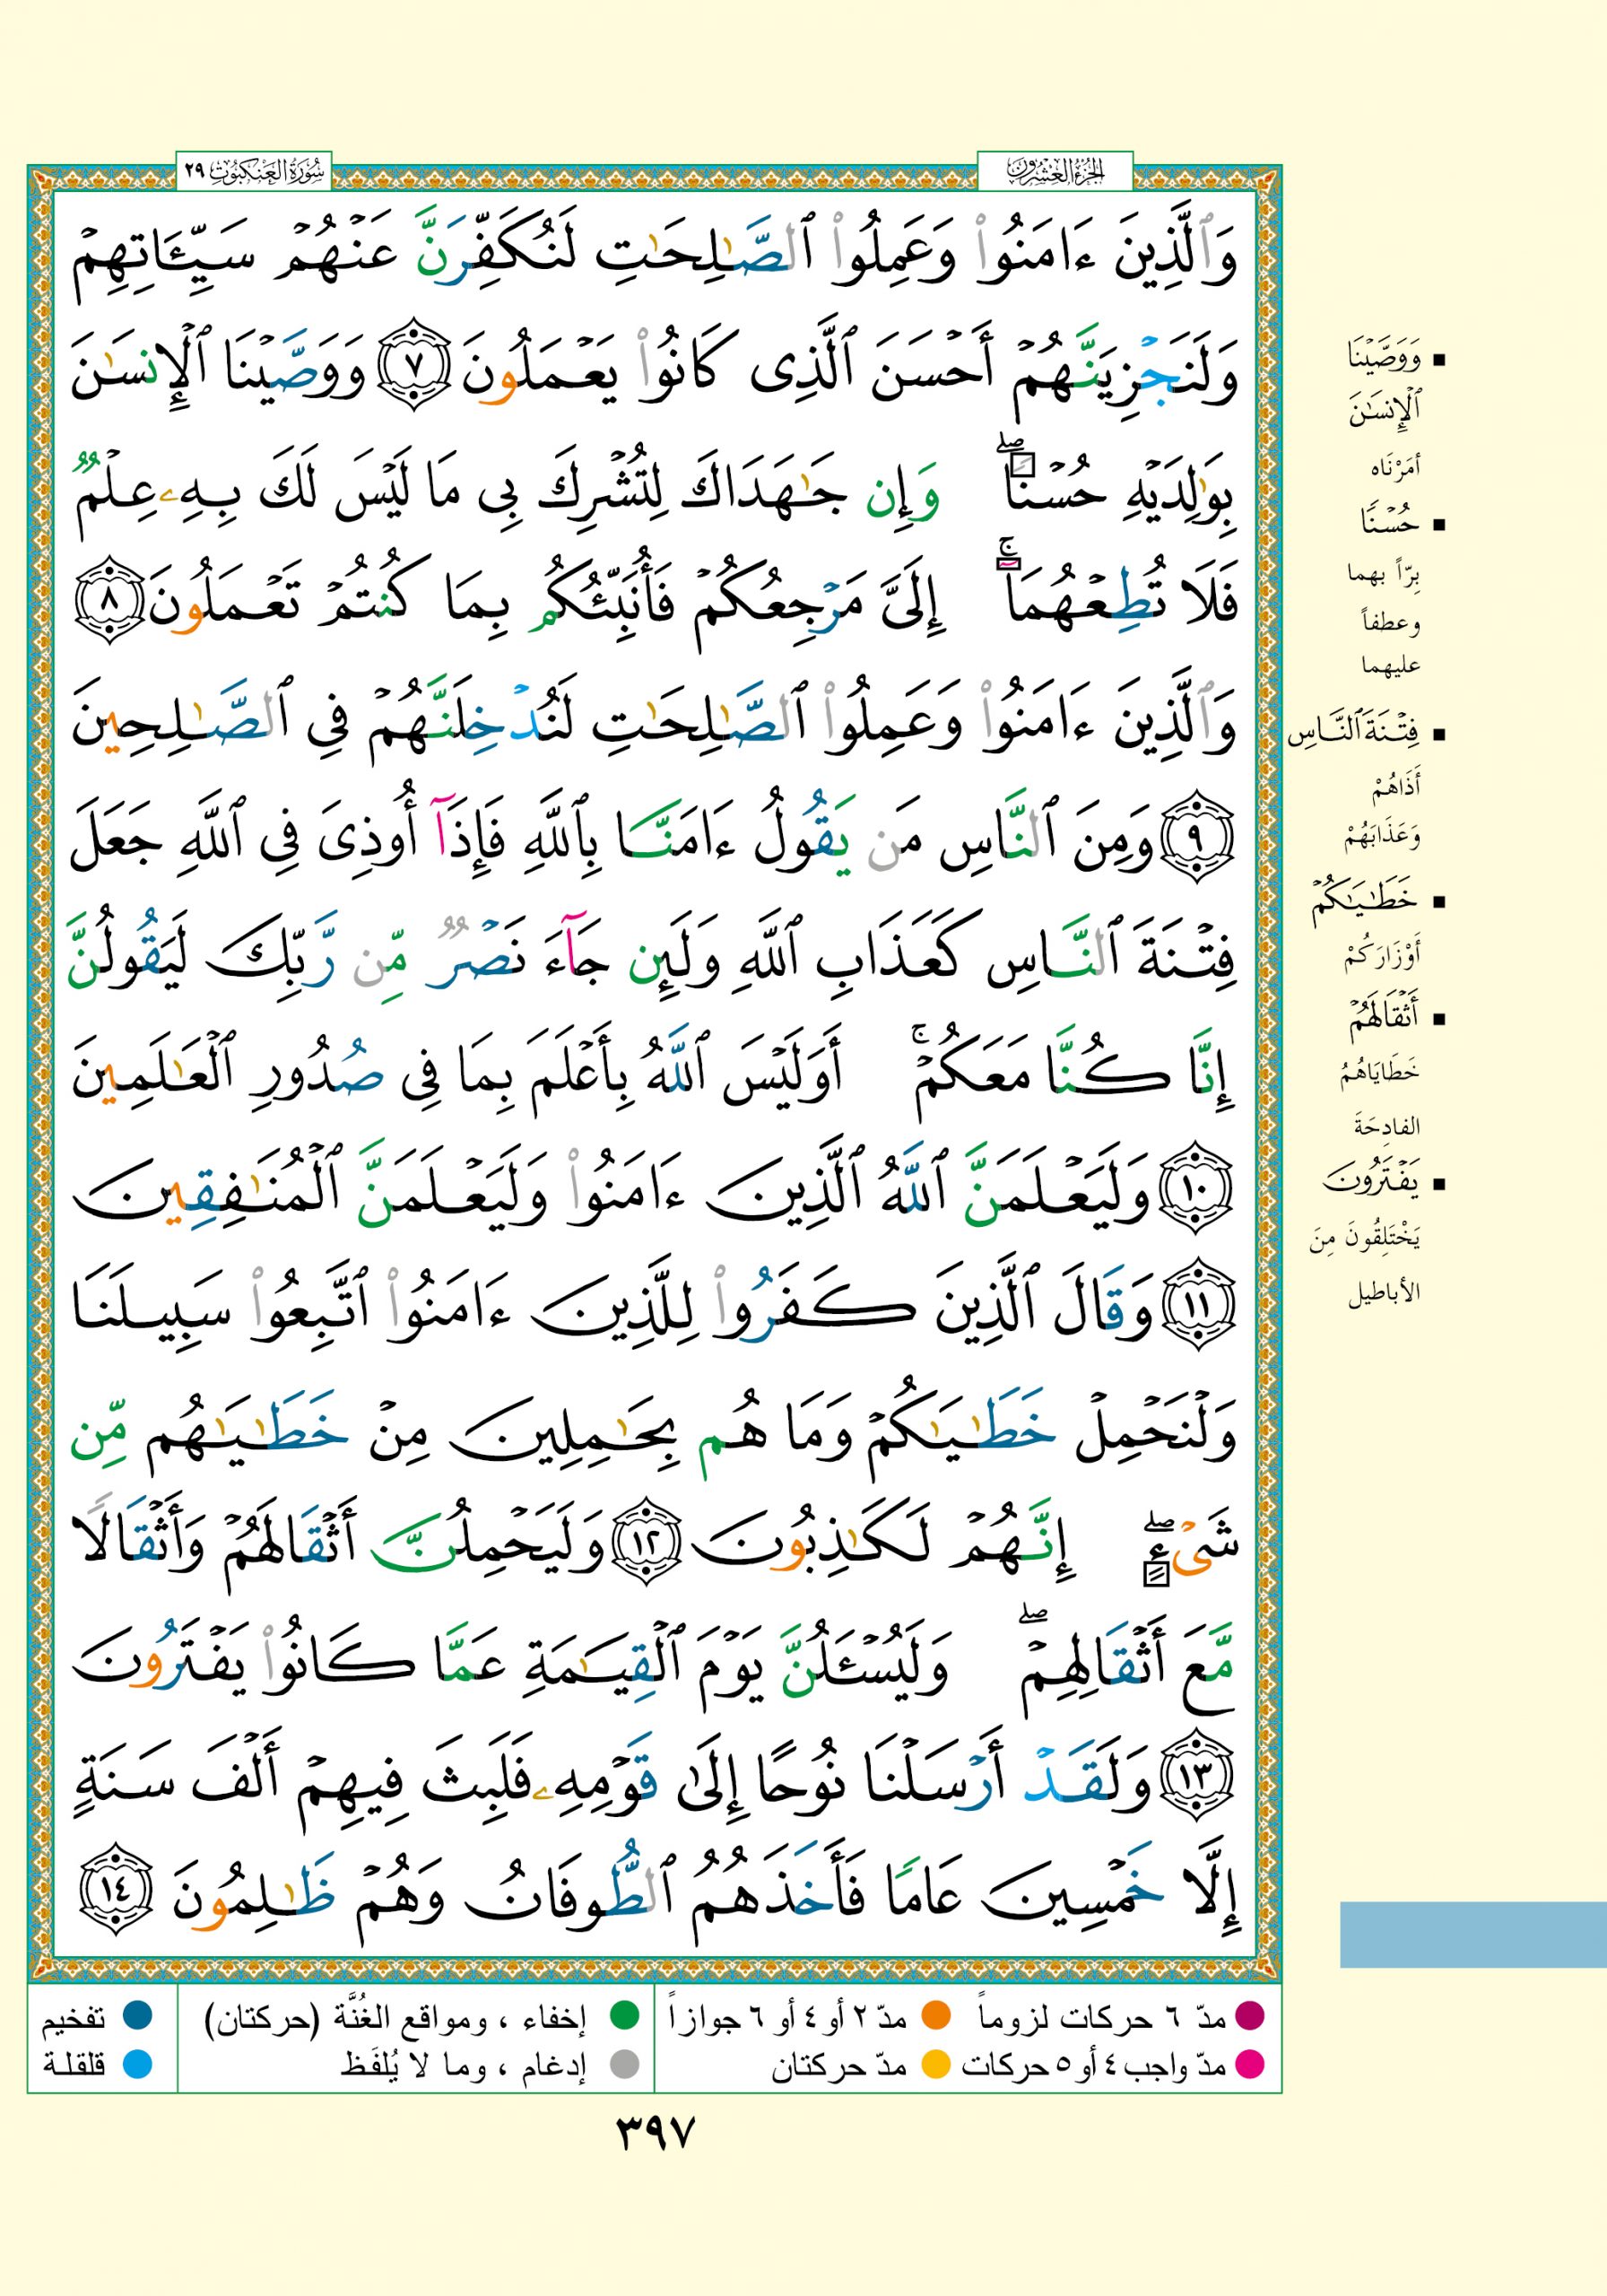 الجُزْءُ العِشْرُونَ
سُورَةُ العَنكَبُوتِ ٢٩
وَٱلَّذِينَ ءَامَنُوا۟ وَعَمِلُوا۟ ٱلصَّـٰلِحَـٰتِ لَنُكَفِّرَنَّ عَنْهُمْ سَيِّـَٔاتِهِمْ
وَلَنَجْزِيَنَّهُمْ أَحْسَنَ ٱلَّذِى كَانُوا۟ يَعْمَلُونَ ٧ وَوَصَّيْنَا ٱلْإِنسَـٰنَ
بِوَٰلِدَيْهِ حُسْنًا ۖ وَإِن جَـٰهَدَاكَ لِتُشْرِكَ بِى مَا لَيْسَ لَكَ بِهِۦ عِلْمٌ
فَلَا تُطِعْهُمَآ ۚ إِلَىَّ مَرْجِعُكُمْ فَأُنَبِّئُكُم بِمَا كُنتُمْ تَعْمَلُونَ ٨
وَٱلَّذِينَ ءَامَنُوا۟ وَعَمِلُوا۟ ٱلصَّـٰلِحَـٰتِ لَنُدْخِلَنَّهُمْ فِى ٱلصَّـٰلِحِينَ
٩ وَمِنَ ٱلنَّاسِ مَن يَقُولُ ءَامَنَّا بِٱللَّهِ فَإِذَآ أُوذِىَ فِى ٱللَّهِ جَعَلَ
فِتْنَةَ ٱلنَّاسِ كَعَذَابِ ٱللَّهِ وَلَئِن جَآءَ نَصْرٌ مِّن رَّبِّكَ لَيَقُولُنَّ
إِنَّا كُنَّا مَعَكُمْ ۚ أَوَلَيْسَ ٱللَّهُ بِأَعْلَمَ بِمَا فِى صُدُورِ ٱلْعَـٰلَمِينَ
١٠ وَلَيَعْلَمَنَّ ٱللَّهُ ٱلَّذِينَ ءَامَنُوا۟ وَلَيَعْلَمَنَّ ٱلْمُنَـٰفِقِينَ
١١ وَقَالَ ٱلَّذِينَ كَفَرُوا۟ لِلَّذِينَ ءَامَنُوا۟ ٱتَّبِعُوا۟ سَبِيلَنَا
وَلْنَحْمِلْ خَطَـٰيَـٰكُمْ وَمَا هُم بِحَـٰمِلِينَ مِنْ خَطَـٰيَـٰهُم مِّن
شَىْءٍ ۖ إِنَّهُمْ لَكَـٰذِبُونَ ١٢ وَلَيَحْمِلُنَّ أَثْقَالَهُمْ وَأَثْقَالًا
مَّعَ أَثْقَالِهِمْ ۖ وَلَيُسْـَٔلُنَّ يَوْمَ ٱلْقِيَـٰمَةِ عَمَّا كَانُوا۟ يَفْتَرُونَ
١٣ وَلَقَدْ أَرْسَلْنَا نُوحًا إِلَىٰ قَوْمِهِۦ فَلَبِثَ فِيهِمْ أَلْفَ سَنَةٍ
إِلَّا خَمْسِينَ عَامًا فَأَخَذَهُمُ ٱلطُّوفَانُ وَهُمْ ظَـٰلِمُونَ ١٤
■ وَوَصَّيْنَا
ٱلْإِنسَـٰنَ
أمَرْنَاه
■ حُسْنًا
بِرّاً بهما
وعطفاً
عليهما
■ فِتْنَةَ ٱلنَّاسِ
أَذَاهُمْ
وَعَذَابَهُمْ
■ خَطَـٰيَـٰكُمْ
أَوْزَارَكُمْ
■ أَثْقَالَهُمْ
خَطَايَاهُمُ
الفادِحَةَ
■ يَفْتَرُونَ
يَخْتَلِقُونَ مِنَ
الأباطيل
مدّ ٦ حركات لزوماً
مدّ ٢ أو ٤ أو ٦ جوازاً
إخفاء ، ومواقع الغُنَّة (حركتان)
تفخيم
مدّ واجب ٤ أو ٥ حركات
مدّ حركتان
إدغام ، وما لا يُلفَظ
قلقلة
٣٩٧